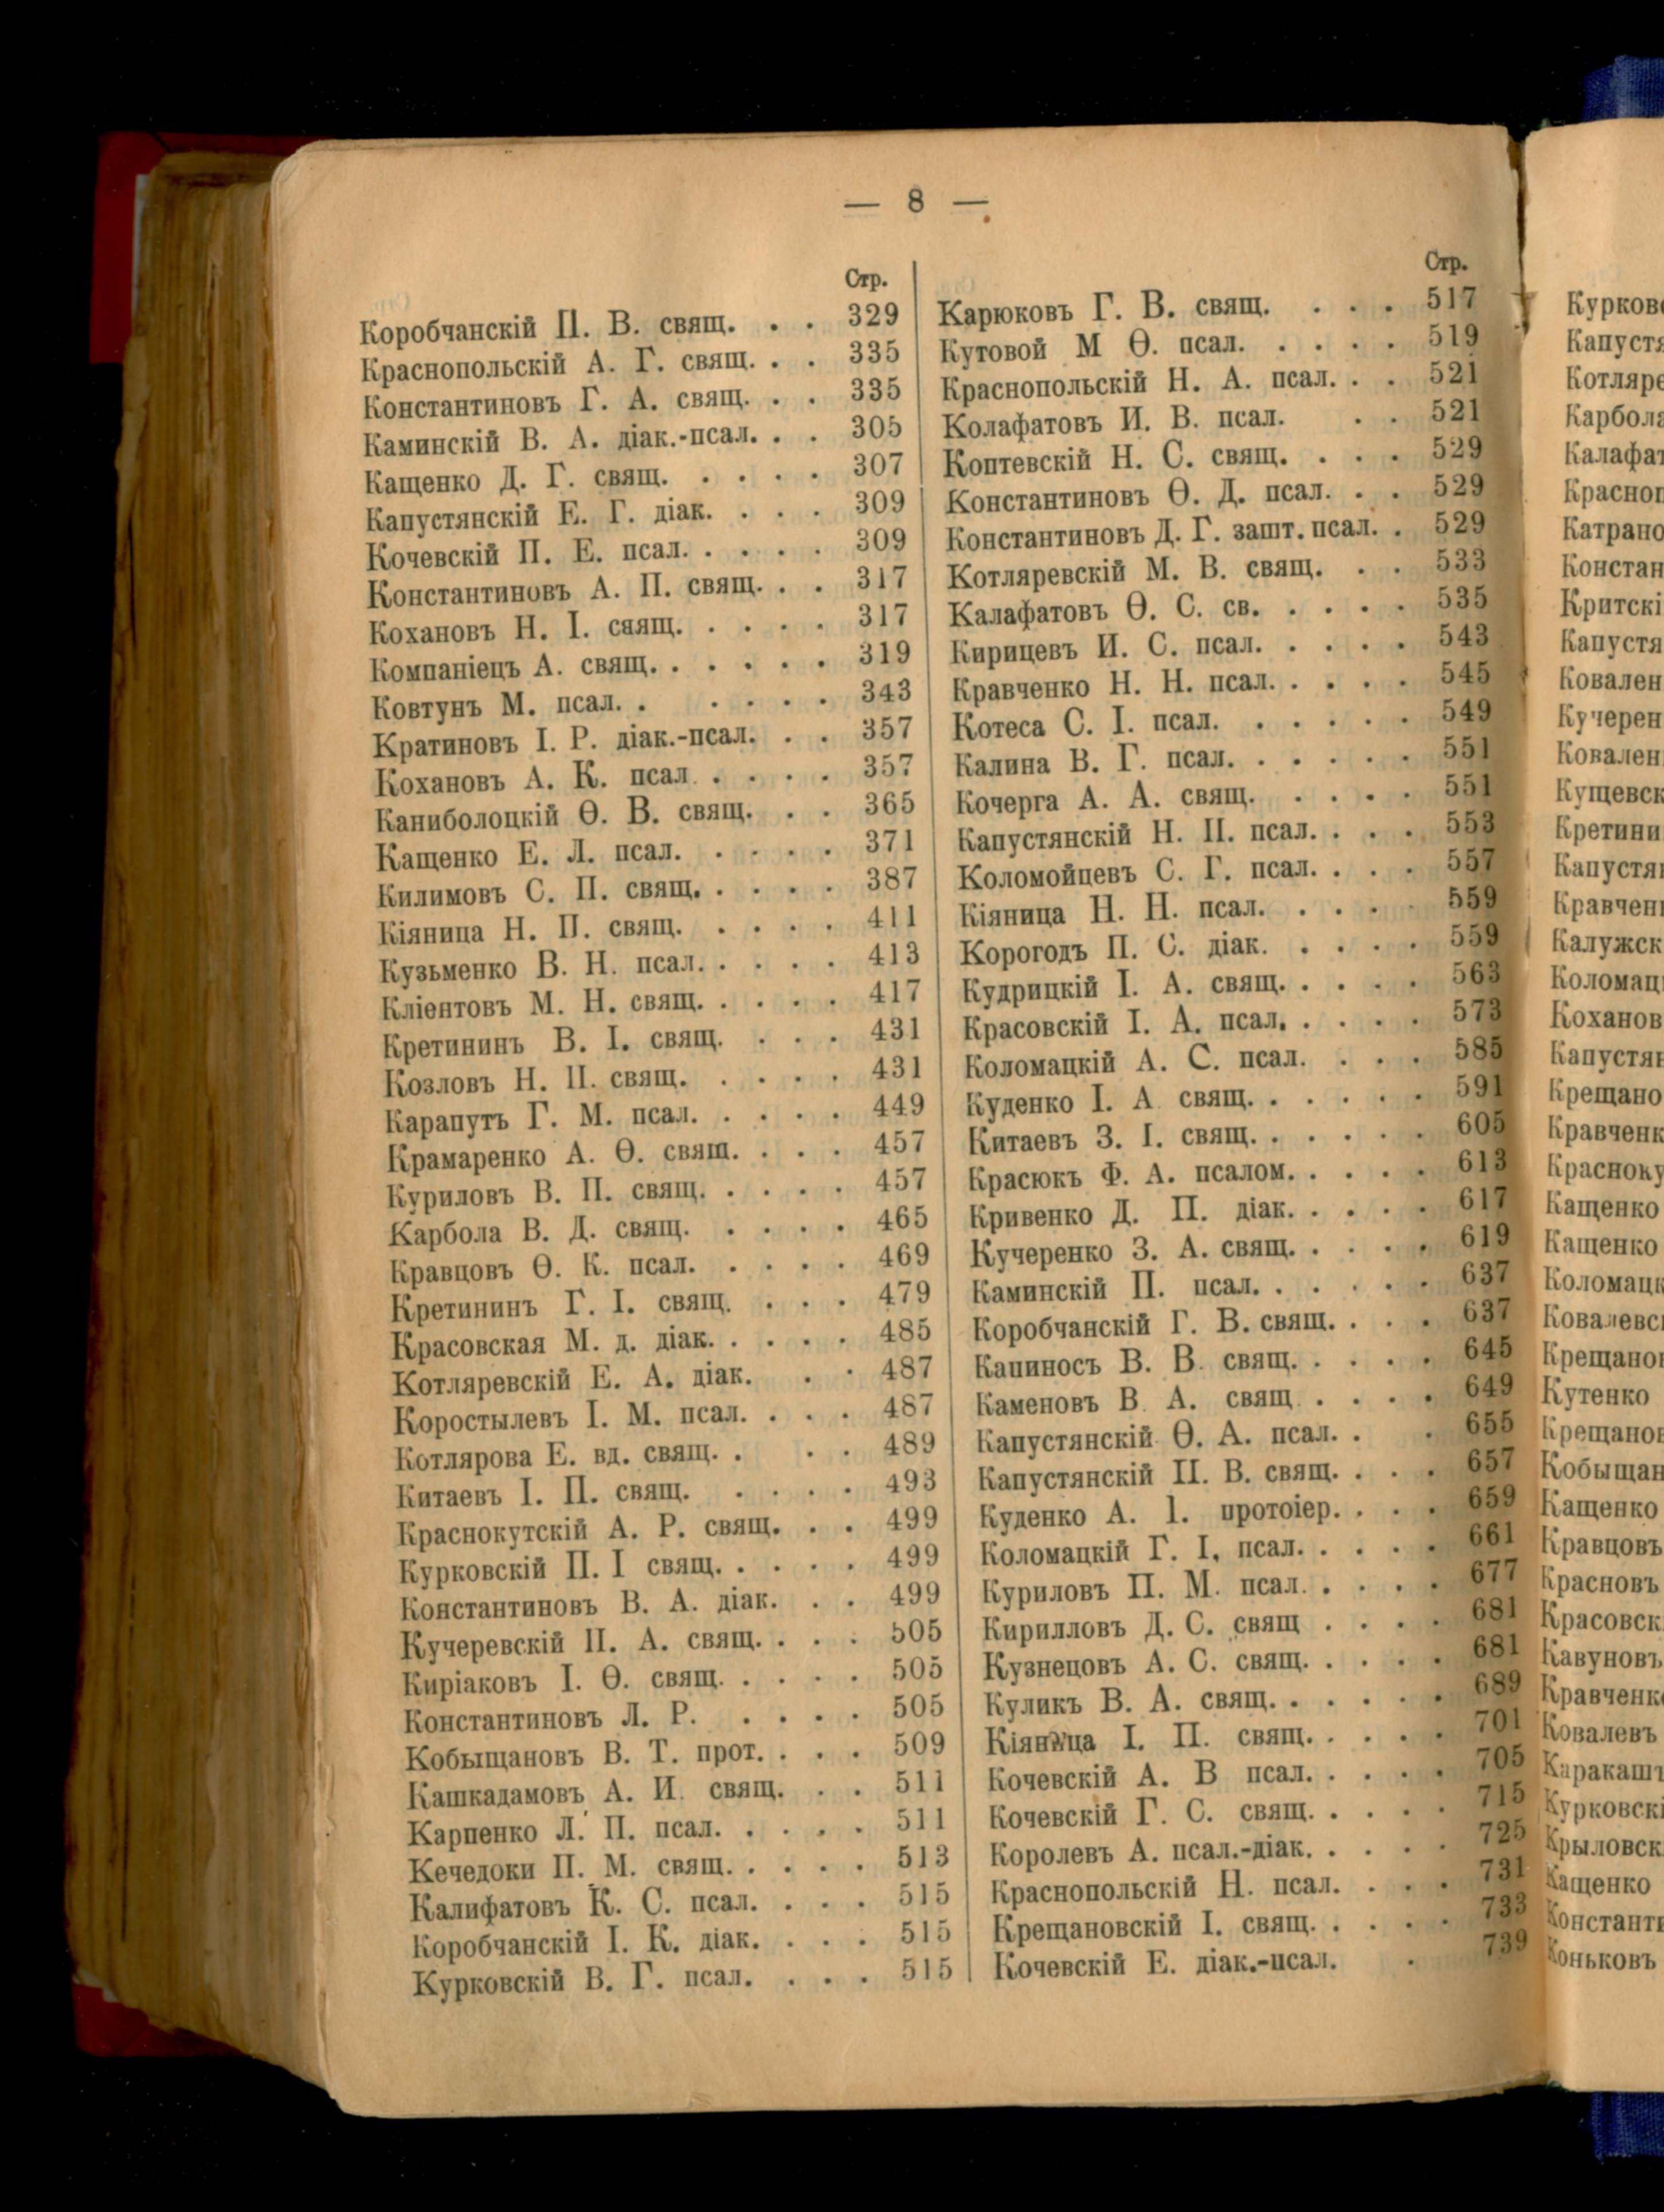 — 8 —
Стр.
Коробчанскій П. В. свящ. . . 329
Краснопольскій А. Г. свящ. . . 335
Константиновъ Г. А. свящ. . . 335
Каминскій В. А. діак.-псал. . . 305
Кащенко Д. Г. свящ. . . . . 307
Капустянскій Е. Г. діак. . . . 309
Кочевскій П. Е. псал. . . . . 309
Константиновъ А. П. свящ. . . 317
Кохановъ Н. І. саящ. . . . . 317
Компаніецъ А. свящ. . . . . . 319
Ковтунъ М. псал. . . . . . 343
Кратиновъ І. Р. діак.-псал. . . 357
Кохановъ А. К. псал . . . . 357
Каниболоцкій Ѳ. В. свящ. . . 365
Кащенко Е. Л. псал. . . . . 371
Килимовъ С. П. свящ. . . . . 387
Кіяница Н. П. свящ. . . . . 411
Кузьменко В. Н. псал. . . . . 413
Кліентовъ М. Н. свящ. . . . . 417
Кретининъ В. І. свящ. . . . 431
Козловъ Н. П. свящ. . . . . 431
Карапутъ Г. М. псал. . . . . 449
Крамаренко А. Ѳ. свящ. . . . 457
Куриловъ В. П. свящ. . . . . 457
Карбола В. Д. свящ. . . . . 465
Кравцовъ Ѳ. К. псал. . . . . 469
Кретининъ Г. І. свящ. . . . 479
Красовская М. д. діак. . . . . 485
Котляревскій Е. А. діак. . . 487
Коростылевъ І. М. псал. . . . 487
Котлярова Е. вд. свящ. . . . 489
Китаевъ І. П. свящ. . . . . 493
Краснокутскій А. Р. свящ. . . 499
Курковскій П. І свящ. . . . . 499
Константиновъ В. А. діак. . . 499
Кучеревскій П. А. свящ. . . . 505
Киріаковъ І. Ѳ. свящ. . . . . 505
Константиновъ Л. Р. . . . . 505
Кобыщановъ В. Т. прот. . . . 509
Кашкадамовъ А. И. свящ. . . 511
Карпенко Л. П. псал. . . . . 511
Кечедоки П. М. свящ. . . . . 513
Калифатовъ К. С. псал. . . . 515
Коробчанскій І. К. діак. . . . 515
Курковскій В. Г. псал. . . . 515
Стр.
Карюковъ Г. В. свящ. . . . 517
Кутовой М Ѳ. псал. . . . . 519
Краснопольскій Н. А. псал. . . 521
Колафатовъ И. В. псал. . . 521
Коптевскій Н. С. свящ. . . . 529
Константиновъ Ѳ. Д. псал. . . 529
Константиновъ Д. Г. зашт. псал. . 529
Котляревскій М. В. свящ. . . 533
Калафатовъ Ѳ. С. св. . . . . 535
Кирицевъ И. С. псал. . . . . 543
Кравченко Н. Н. псал. . . . . 545
Котеса С. І. псал. . . . . . 549
Калина В. Г. псал. . . . . . 551
Кочерга А. А. свящ. . . . . 551
Капустянскій Н. П. псал. . . . 553
Коломойцевъ С. Г. псал. . . . 557
Кіяница Н. Н. псал. . . . . 559
Корогодъ П. С. діак. . . . . 559
Кудрицкій І. А. свящ. . . . . 563
Красовскій І. А. псал. . . . . 573
Коломацкій А. С. псал. . . . 585
Куденко І. А свящ. . . . . . 591
Китаевъ З. І. свящ. . . . . . 605
Красюкъ Ф. А. псалом. . . . . 613
Кривенко Д. П. діак. . . . . 617
Кучеренко З. А. свящ. . . . . 619
Каминскій П. псал. . . . . . 637
Коробчанскій Г. В. свящ. . . . 637
Капиносъ В. В. свящ. . . . . 645
Каменовъ В. А. свящ . . . . 649
Капустянскій Ѳ. А. псал. . . 655
Капустянскій П. В. свящ. . . . 657
Куденко А. І. протоіер. . . . 659
Коломацкій Г. І. псал. . . . . 661
Куриловъ П. М. псал. . . . . 677
Кирилловъ Д. С. свящ . . . . 681
Кузнецовъ А. С. свящ. . . . . 681
Куликъ В. А. свящ. . . . . . 689
Кіяница І. П. свящ. . . . . 701
Кочевскій А. В псал. . . . . 705
Кочевскій Г. С. свящ. . . . . 715
Королевъ А. псал.-діак. . . . . 725
Краснопольскій Н. псал. . . . 731
Крещановскій І. свящ. . . . . 733
Кочевскій Е. діак.-псал. . 739
Кащенко
Кащенко
Кутенко
Кащенко
Кравцовъ
Красновъ
Кавуновъ
Ковалевъ
Кащенко
Коньковъ